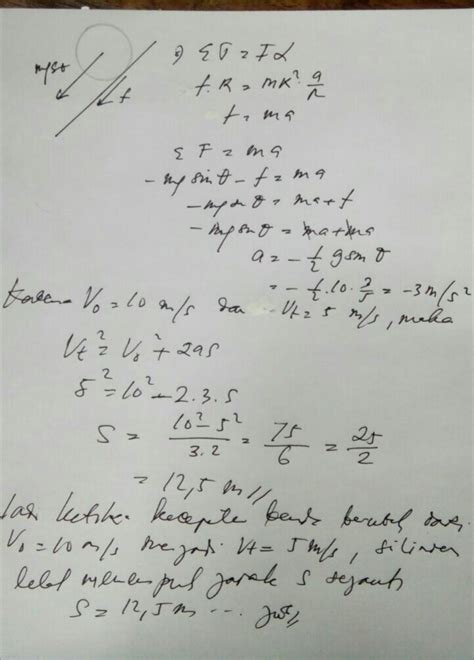 mg sin θ
f
⊃ Στ = Iα
f.R = mR² . a/R
f = ma
Σ F = ma
- mg sin θ - f = ma
- mg sin θ = ma + f
- mg sin θ = ma + ma
a = - ½ g sin θ
= - ½ . 10 . 3/5 = -3 m/s²
Karena V₀ = 10 m/s dan Vt = 5 m/s, maka
Vt² = V₀² + 2as
5² = 10² - 2.3.S
S = 10² - 5² / 3.2 = 75/6 = 25/2
= 12,5 m //
Jadi ketika kecepatan benda berubah dari
V₀ = 10 m/s menjadi Vt = 5 m/s, silinder
telah menempuh jarak S sejauh
S = 12,5 m ...